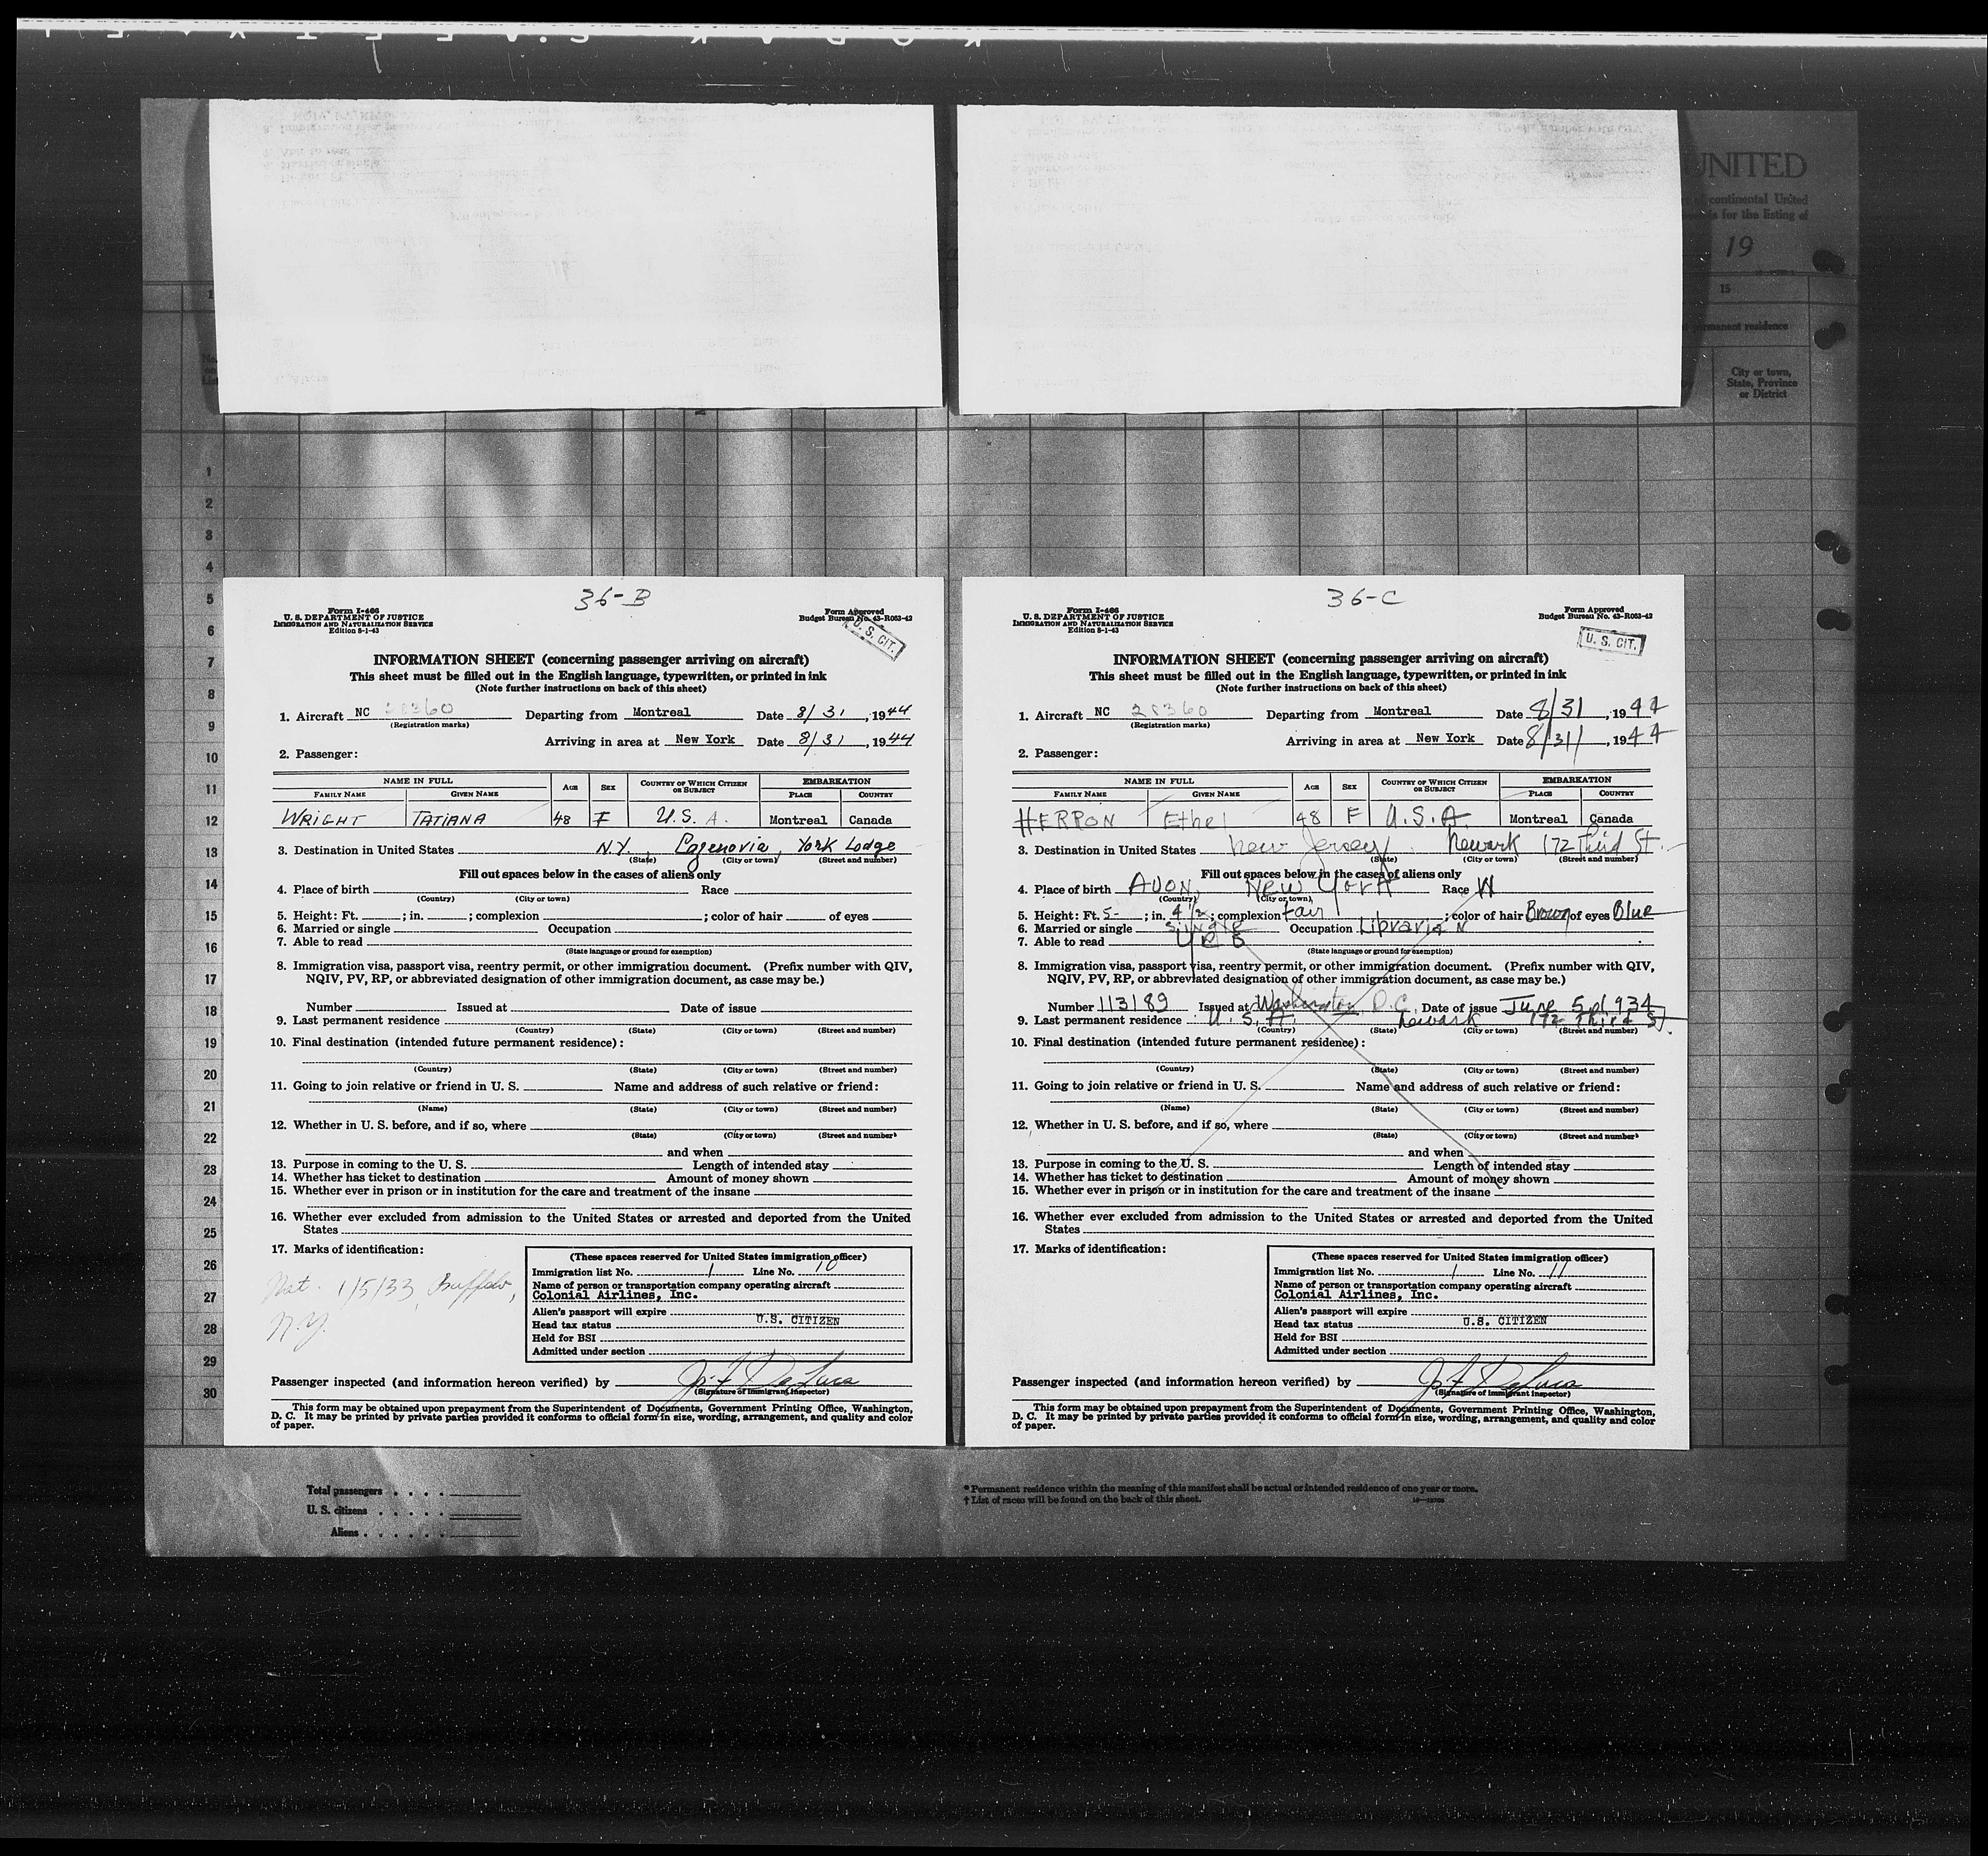 UNITED
continental United
is for the listing of
19
15
permanent residence
City or town,
State, Province
or District
1
2
3
4
5
6
7
8
9
10
11
12
13
14
15
16
17
18
19
20
21
22
23
24
25
26
27
28
29
30
36-B
Form I-466
U. S. DEPARTMENT OF JUSTICE
IMMIGRATION AND NATURALIZATION SERVICE
Edition 8-1-43
Form Approved
Budget Bureau No. 43-R063-42
U. S. CIT.
INFORMATION SHEET (concerning passenger arriving on aircraft)
This sheet must be filled out in the English language, typewritten, or printed in ink
(Note further instructions on back of this sheet)
1. Aircraft NC 28360 Departing from Montreal Date 8/31, 1944
(Registration marks)
Arriving in area at New York Date 8/31, 1944
2. Passenger:
NAME IN FULL AGE SEX COUNTRY OF WHICH CITIZEN OR SUBJECT EMBARKATION
FAMILY NAME GIVEN NAME PLACE COUNTRY
WRIGHT TATIANA 48 F U.S.A. Montreal Canada
3. Destination in United States N.Y., Cazenovia, York Lodge
(State) (City or town) (Street and number)
Fill out spaces below in the cases of aliens only
4. Place of birth Race
(Country) (City or town)
5. Height: Ft. ; in. ; complexion ; color of hair of eyes
6. Married or single Occupation
7. Able to read
(State language or ground for exemption)
8. Immigration visa, passport visa, reentry permit, or other immigration document. (Prefix number with QIV,
NQIV, PV, RP, or abbreviated designation of other immigration document, as case may be.)
Number Issued at Date of issue
9. Last permanent residence
(Country) (State) (City or town) (Street and number)
10. Final destination (intended future permanent residence):
(Country) (State) (City or town) (Street and number)
11. Going to join relative or friend in U. S. Name and address of such relative or friend:
(Name) (State) (City or town) (Street and number)
12. Whether in U. S. before, and if so, where
(State) (City or town) (Street and number)
and when
13. Purpose in coming to the U. S. Length of intended stay
14. Whether has ticket to destination Amount of money shown
15. Whether ever in prison or in institution for the care and treatment of the insane
16. Whether ever excluded from admission to the United States or arrested and deported from the United
States
17. Marks of identification:
Nat. 1/5/33, Buffalo,
N.Y.
(These spaces reserved for United States immigration officer)
Immigration list No. 1 Line No. 10
Name of person or transportation company operating aircraft
Colonial Airlines, Inc.
Alien's passport will expire
Head tax status U.S. CITIZEN
Held for BSI
Admitted under section
Passenger inspected (and information hereon verified) by Jos F DeLuca
(Signature of immigrant inspector)
This form may be obtained upon prepayment from the Superintendent of Documents, Government Printing Office, Washington,
D. C. It may be printed by private parties provided it conforms to official form in size, wording, arrangement, and quality and color
of paper.
36-C
Form I-466
U. S. DEPARTMENT OF JUSTICE
IMMIGRATION AND NATURALIZATION SERVICE
Edition 8-1-43
Form Approved
Budget Bureau No. 43-R063-42
U. S. CIT.
INFORMATION SHEET (concerning passenger arriving on aircraft)
This sheet must be filled out in the English language, typewritten, or printed in ink
(Note further instructions on back of this sheet)
1. Aircraft NC 28360 Departing from Montreal Date 8/31, 1944
(Registration marks)
Arriving in area at New York Date 8/31/, 1944
2. Passenger:
NAME IN FULL AGE SEX COUNTRY OF WHICH CITIZEN OR SUBJECT EMBARKATION
FAMILY NAME GIVEN NAME PLACE COUNTRY
HERRON Ethel 48 F U.S.A. Montreal Canada
3. Destination in United States New Jersey. Newark 172 Third St.
(State) (City or town) (Street and number)
Fill out spaces below in the cases of aliens only
4. Place of birth AVON, New York Race W
(Country) (City or town)
5. Height: Ft. 5- ; in. 4 1/2 ; complexion fair ; color of hair Brown of eyes Blue
6. Married or single Single Occupation Librarian
7. Able to read
(State language or ground for exemption)
8. Immigration visa, passport visa, reentry permit, or other immigration document. (Prefix number with QIV,
NQIV, PV, RP, or abbreviated designation of other immigration document, as case may be.)
Number 113189 Issued at Washington, D.C. Date of issue June 5, 1934
9. Last permanent residence U. S. A. Newark 172 Third St.
(Country) (State) (City or town) (Street and number)
10. Final destination (intended future permanent residence):
(Country) (State) (City or town) (Street and number)
11. Going to join relative or friend in U. S. Name and address of such relative or friend:
(Name) (State) (City or town) (Street and number)
12. Whether in U. S. before, and if so, where
(State) (City or town) (Street and number)
and when
13. Purpose in coming to the U. S. Length of intended stay
14. Whether has ticket to destination Amount of money shown
15. Whether ever in prison or in institution for the care and treatment of the insane
16. Whether ever excluded from admission to the United States or arrested and deported from the United
States
17. Marks of identification:
(These spaces reserved for United States immigration officer)
Immigration list No. 1 Line No. 11
Name of person or transportation company operating aircraft
Colonial Airlines, Inc.
Alien's passport will expire
Head tax status U.S. CITIZEN
Held for BSI
Admitted under section
Passenger inspected (and information hereon verified) by Jos F DeLuca
(Signature of immigrant inspector)
This form may be obtained upon prepayment from the Superintendent of Documents, Government Printing Office, Washington,
D. C. It may be printed by private parties provided it conforms to official form in size, wording, arrangement, and quality and color
of paper.
Total passengers
U. S. citizens
Aliens
* Permanent residence within the meaning of this manifest shall be actual or intended residence of one year or more.
† List of races will be found on the back of this sheet.